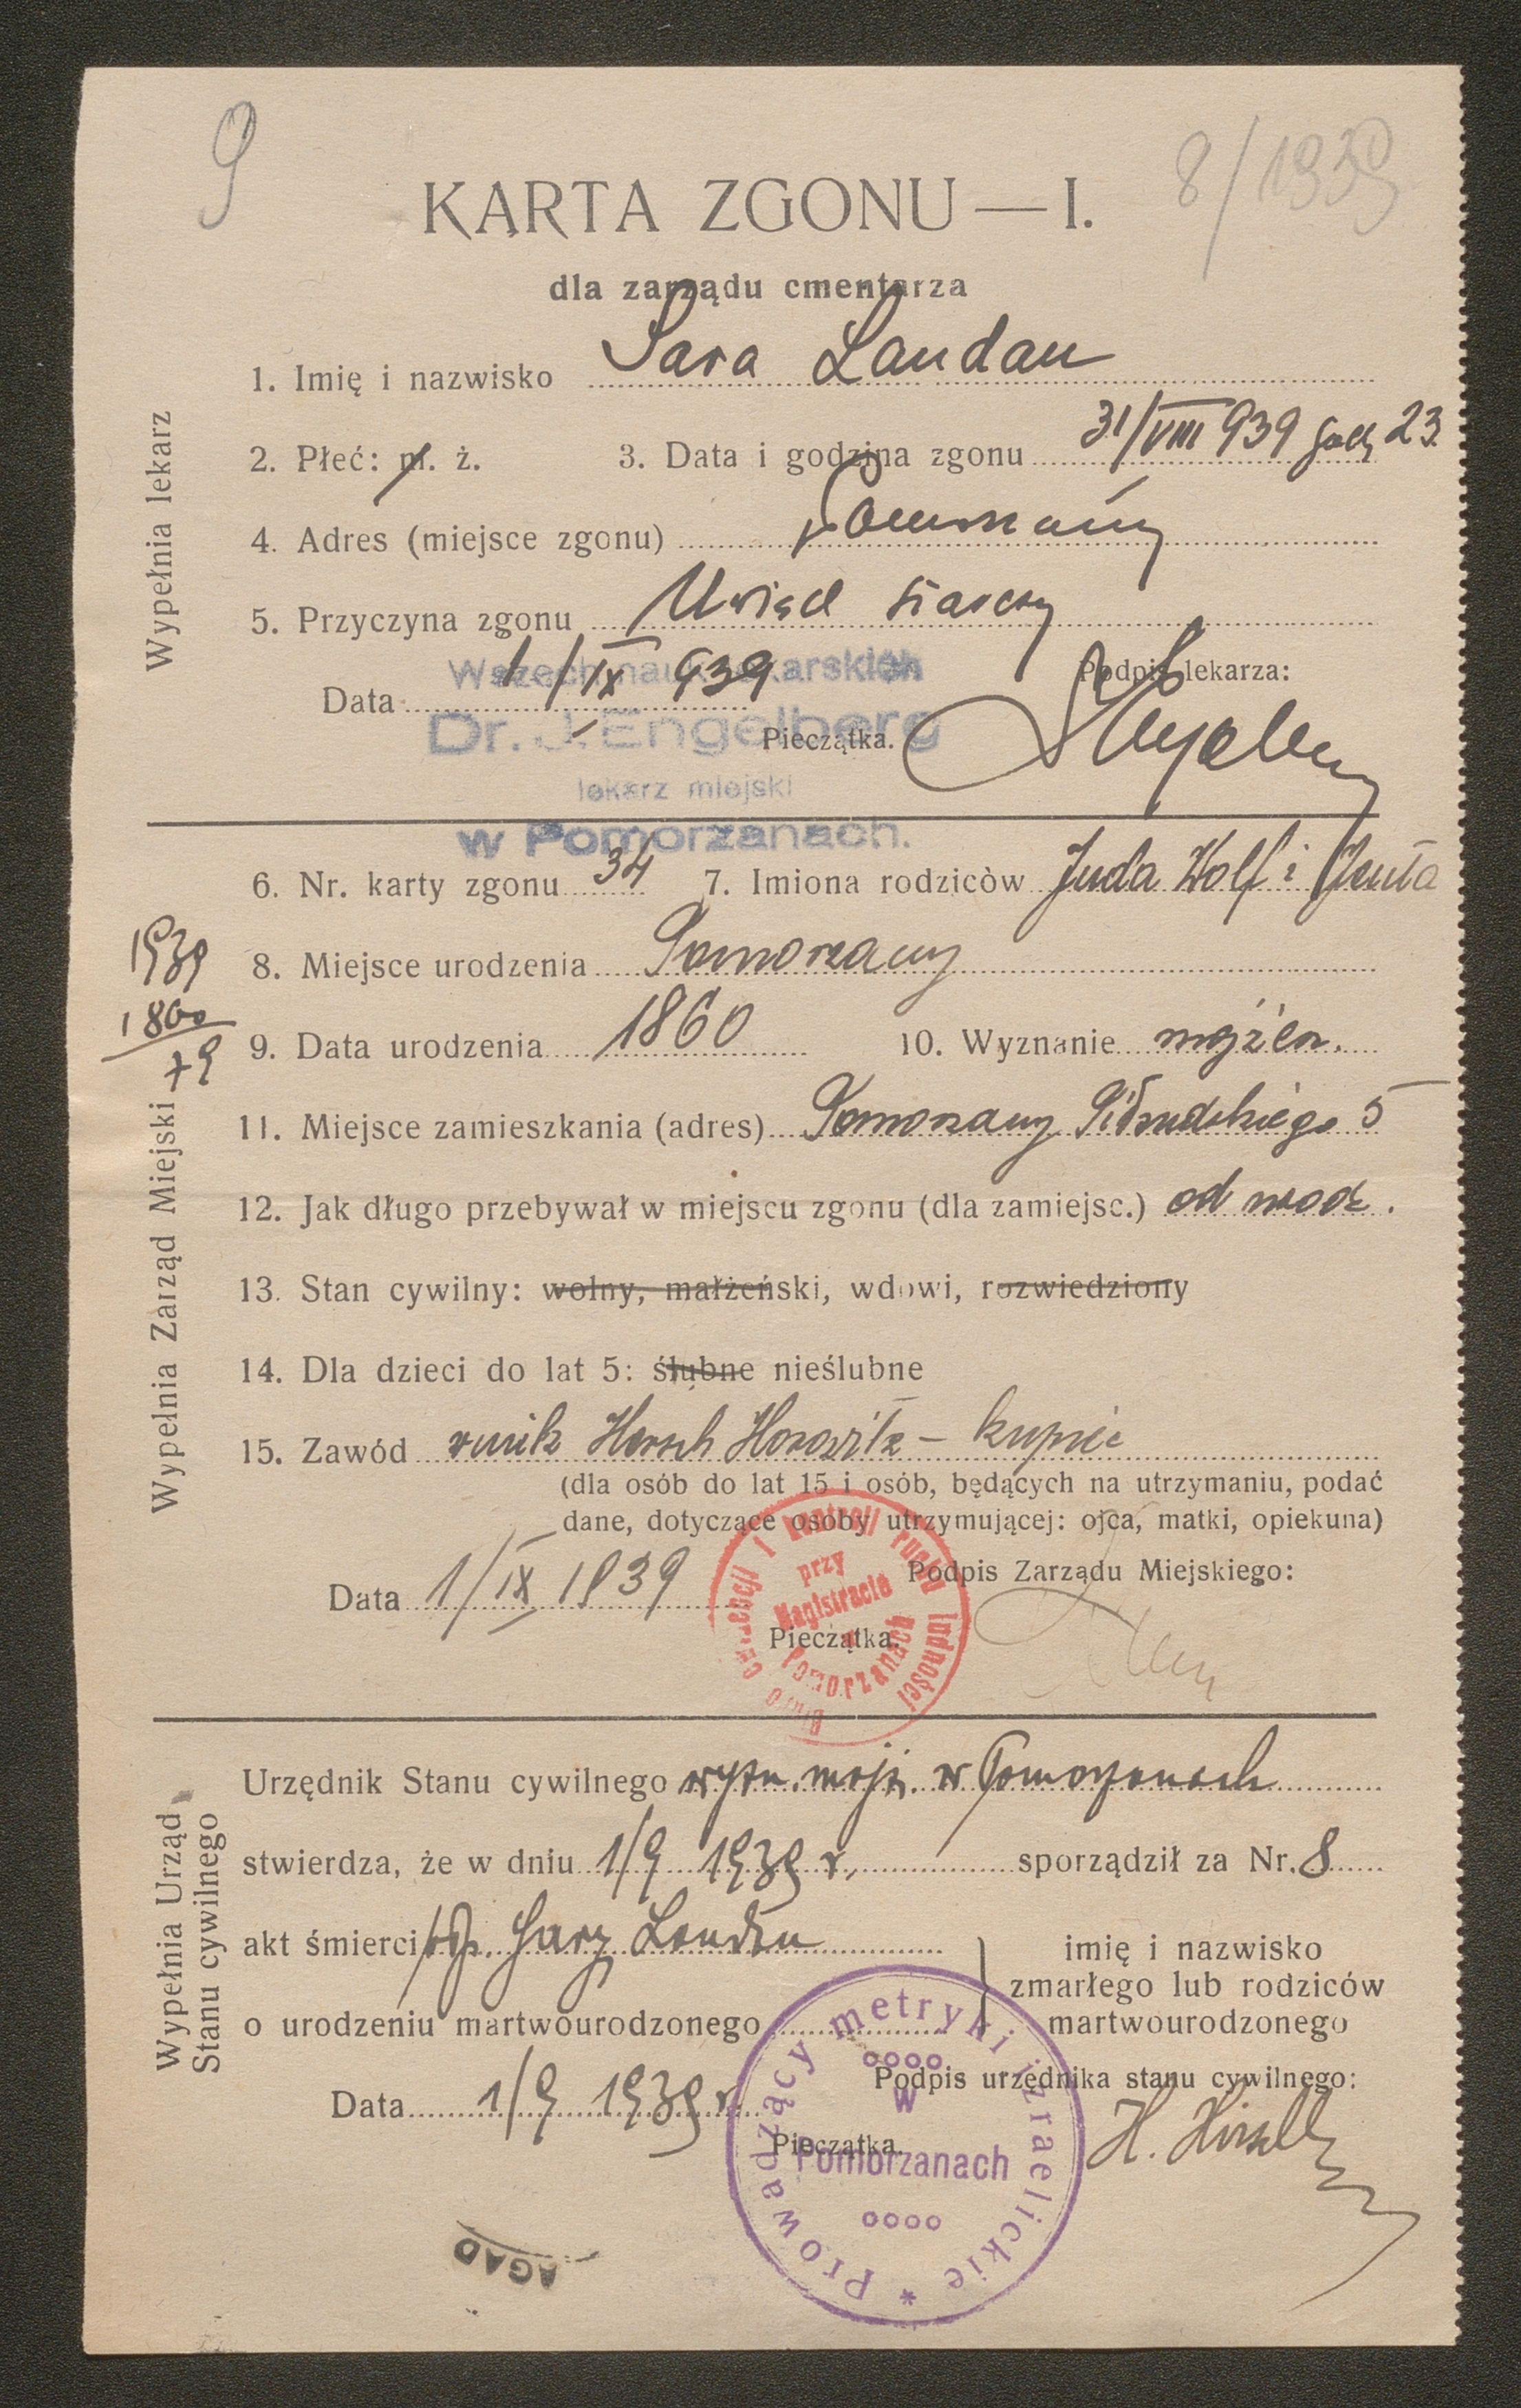 9
8/1939
KARTA ZGONU — I.
dla zarządu cmentarza
Wypełnia lekarz
1. Imię i nazwisko Sara Landau
2. Płeć: m. ż. 3. Data i godzina zgonu 31/VIII 939 godz 23
4. Adres (miejsce zgonu) Pomorzany
5. Przyczyna zgonu Uwiąd starczy
Wszech nauk lekarskich
Data 1/IX 939 Podpis lekarza:
Dr. J. Engelberg
Pieczątka.
lekarz miejski
w Pomorzanach.
Wypełnia Zarząd Miejski
6. Nr. karty zgonu 34 7. Imiona rodziców Juda Wolf i
1939
1860
79
8. Miejsce urodzenia Pomorzany
9. Data urodzenia 1860 10. Wyznanie mojżesz.
11. Miejsce zamieszkania (adres) Pomorzany Piłsudskiego 5
12. Jak długo przebywał w miejscu zgonu (dla zamiejsc.) od urodz.
13. Stan cywilny: wolny, małżeński, wdowi, rozwiedziony
14. Dla dzieci do lat 5: ślubne nieślubne
15. Zawód wnik Hersch Horowitz – kupiec
(dla osób do lat 15 i osób, będących na utrzymaniu, podać
dane, dotyczące osoby utrzymującej: ojca, matki, opiekuna)
Data 1/IX 1939 Podpis Zarządu Miejskiego:
Pieczątka.
Biuro ewidencji i kontroli ruchu ludności
przy Magistracie w Pomorzanach
Wypełnia Urząd Stanu cywilnego
Urzędnik Stanu cywilnego wyzn. mojż. w Pomorzanach
stwierdza, że w dniu 1/9 1939 r. sporządził za Nr. 8
akt śmierci Sary Landau
imię i nazwisko
zmarłego lub rodziców
martwourodzonego
o urodzeniu martwourodzonego
Podpis urzędnika stanu cywilnego:
Data 1/9 1939 r.
Pieczątka.
Prowadzący metryki izraelickie *
w
Pomorzanach
AGAD